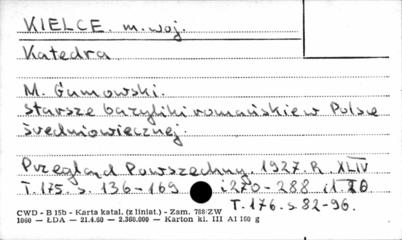 KIELCE. m. woj.
Katedra
M. Gumowski.
Starsze bazyliki romańskie w Polsce
średniowiecznej.
Przegląd Powszechny. 1927. R. XLIV
T. 175. s. 136-169 i 270-288 i
T. 176. s 82-96.
CWD - B 15b - Karta katal. (z liniat.) - Zam. 788/ZW
1060 — ŁDA — 21.4.60 — 2.360.000 — Karton kl. III A1 160 g